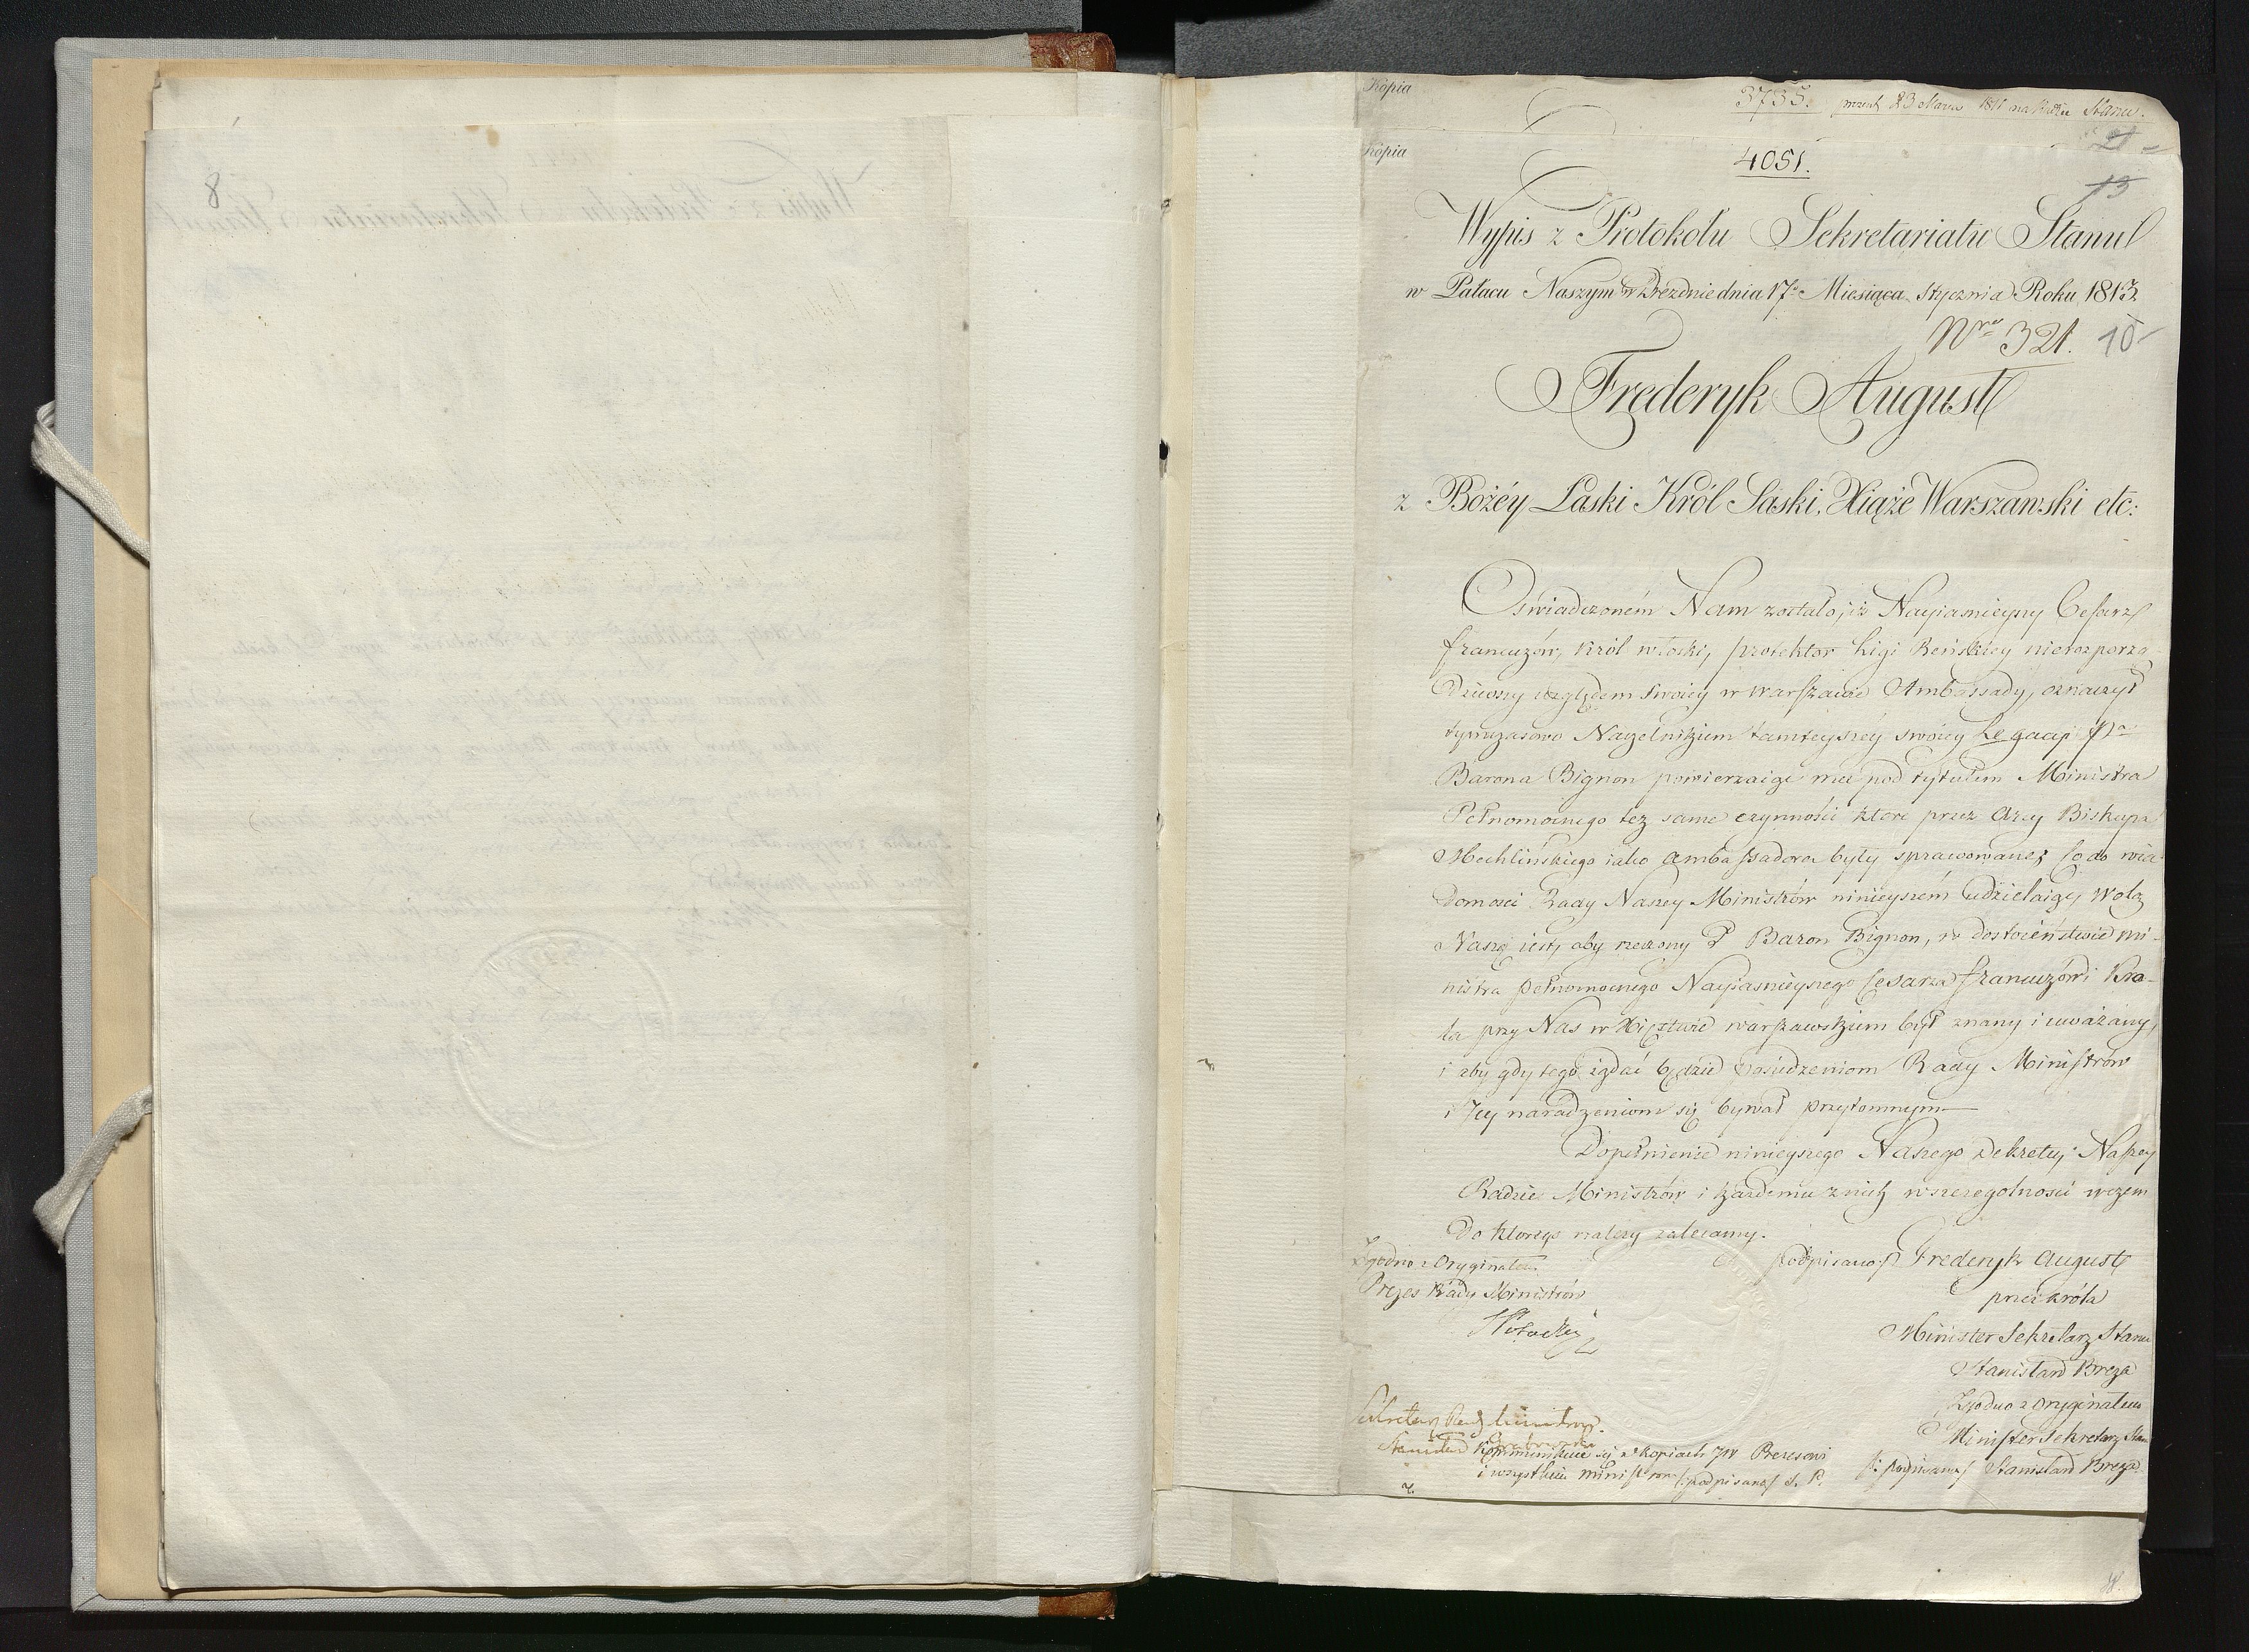 8
Kopia
3735.
Stanu.
Kopia
4051.
21
15
Wypis z Protokołu Sekretariatu Stanu
w Pałacu Naszym w Dreznie dnia 17. Miesiąca stycznia Roku 1813.
Nro 321. 10
Frederyk August
z Bożéy Łaski Król Saski, Xiąże Warszawski etc:
Oswiadczoném Nam zostało, iż Nayiasnieyszy Cesarz
francuzów, Król włoski, protektor Ligi Reńskiey nierozporzą-
dziwszy względem swoiey w Warszawie Ambassady, oznaczył
tymczasowo Naczelnikiem tamteyszéy swoiéy Legacyi Pa
Barona Bignon powierzaiąc mu pod tytułem Ministra
Pełnomocnego też same czynności które przez Arcy Biskupa
Mechlińskiego iako Ambassadora były sprawowane; Co do wia-
domosci Rady Naszey Ministrów ninieyszém udzielaiąc, Wolą
Naszą iest, aby rzeczony P Baron Bignon, w dostoieństwie mi-
nistra pełnomocnego Nayiasnieyszego Cesarza francuzów i Kró-
la przy Nas w Xięstwie warszawskiem był znany i uważany,
i aby gdy tego żądać będzie posiedzeniom Rady Ministrów
i Jey naradzeniom się bywał przytomnym
Dopełnienie ninieyszego Naszego Dekretu, Naszey
Radzie Ministrów i każdemu z nich w szczególnosci w czem
do ktorego należy zalecamy.
Zgodno z Oryginałem
Prezes Rady Ministrów
podpisano/ Frederyk August
przez króla
Minister Sekretarz Stanu
Stanisław Breza
Zgodno z Oryginałem
Minister Sekretarz Stanu
/: podpisano/ Stanisław Breza
Sekretarz Rady Ministrow
Stanisław Grabowski
Kommunikuie się w kopiach JW Prezesowi
i wszystkim Ministrom /:podpisano/ S. P.